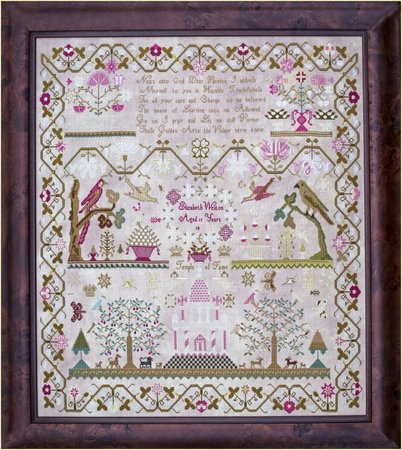 Next unto God Dear Parents I address
Myself to you in Humble Thankfulness
For all your care and Charge on me bestowed
The means of Learning unto me Allowed
Go on I pray and Let me still Pursue
Those Golden Arts the Vulgar never knew
Elizabeth
Aged 11 Years
Temple of Fame